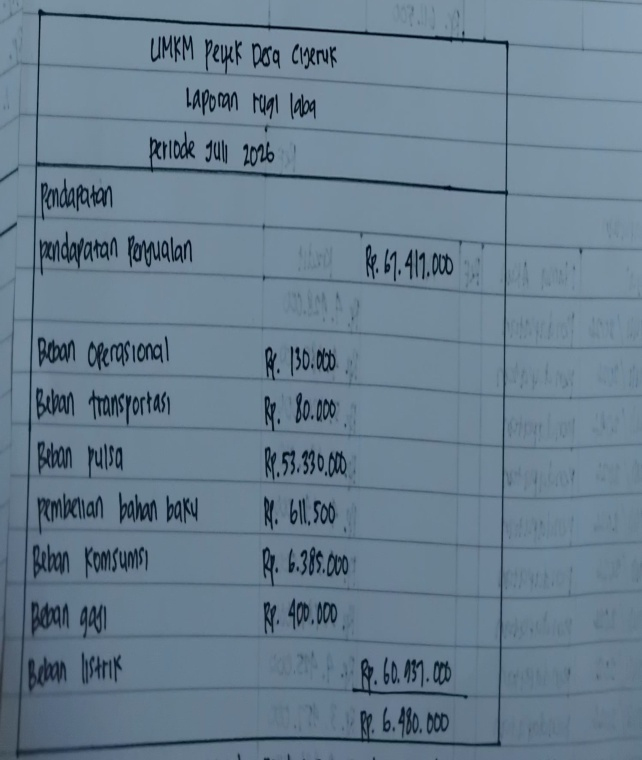 UMKM Peyek Desa Ciseruk
Laporan rugi laba
Periode Juli 2026
Pendapatan
pendapatan Penjualan Rp. 67.417.000
Beban Operasional Rp. 130.000
Beban transportasi Rp. 80.000
Beban pulsa Rp. 53.330.000
pembelian bahan baku Rp. 611.500
Beban Komsumsi Rp. 6.385.000
Beban gaji Rp. 400.000
Beban listrik Rp. 60.937.000
Rp. 6.480.000